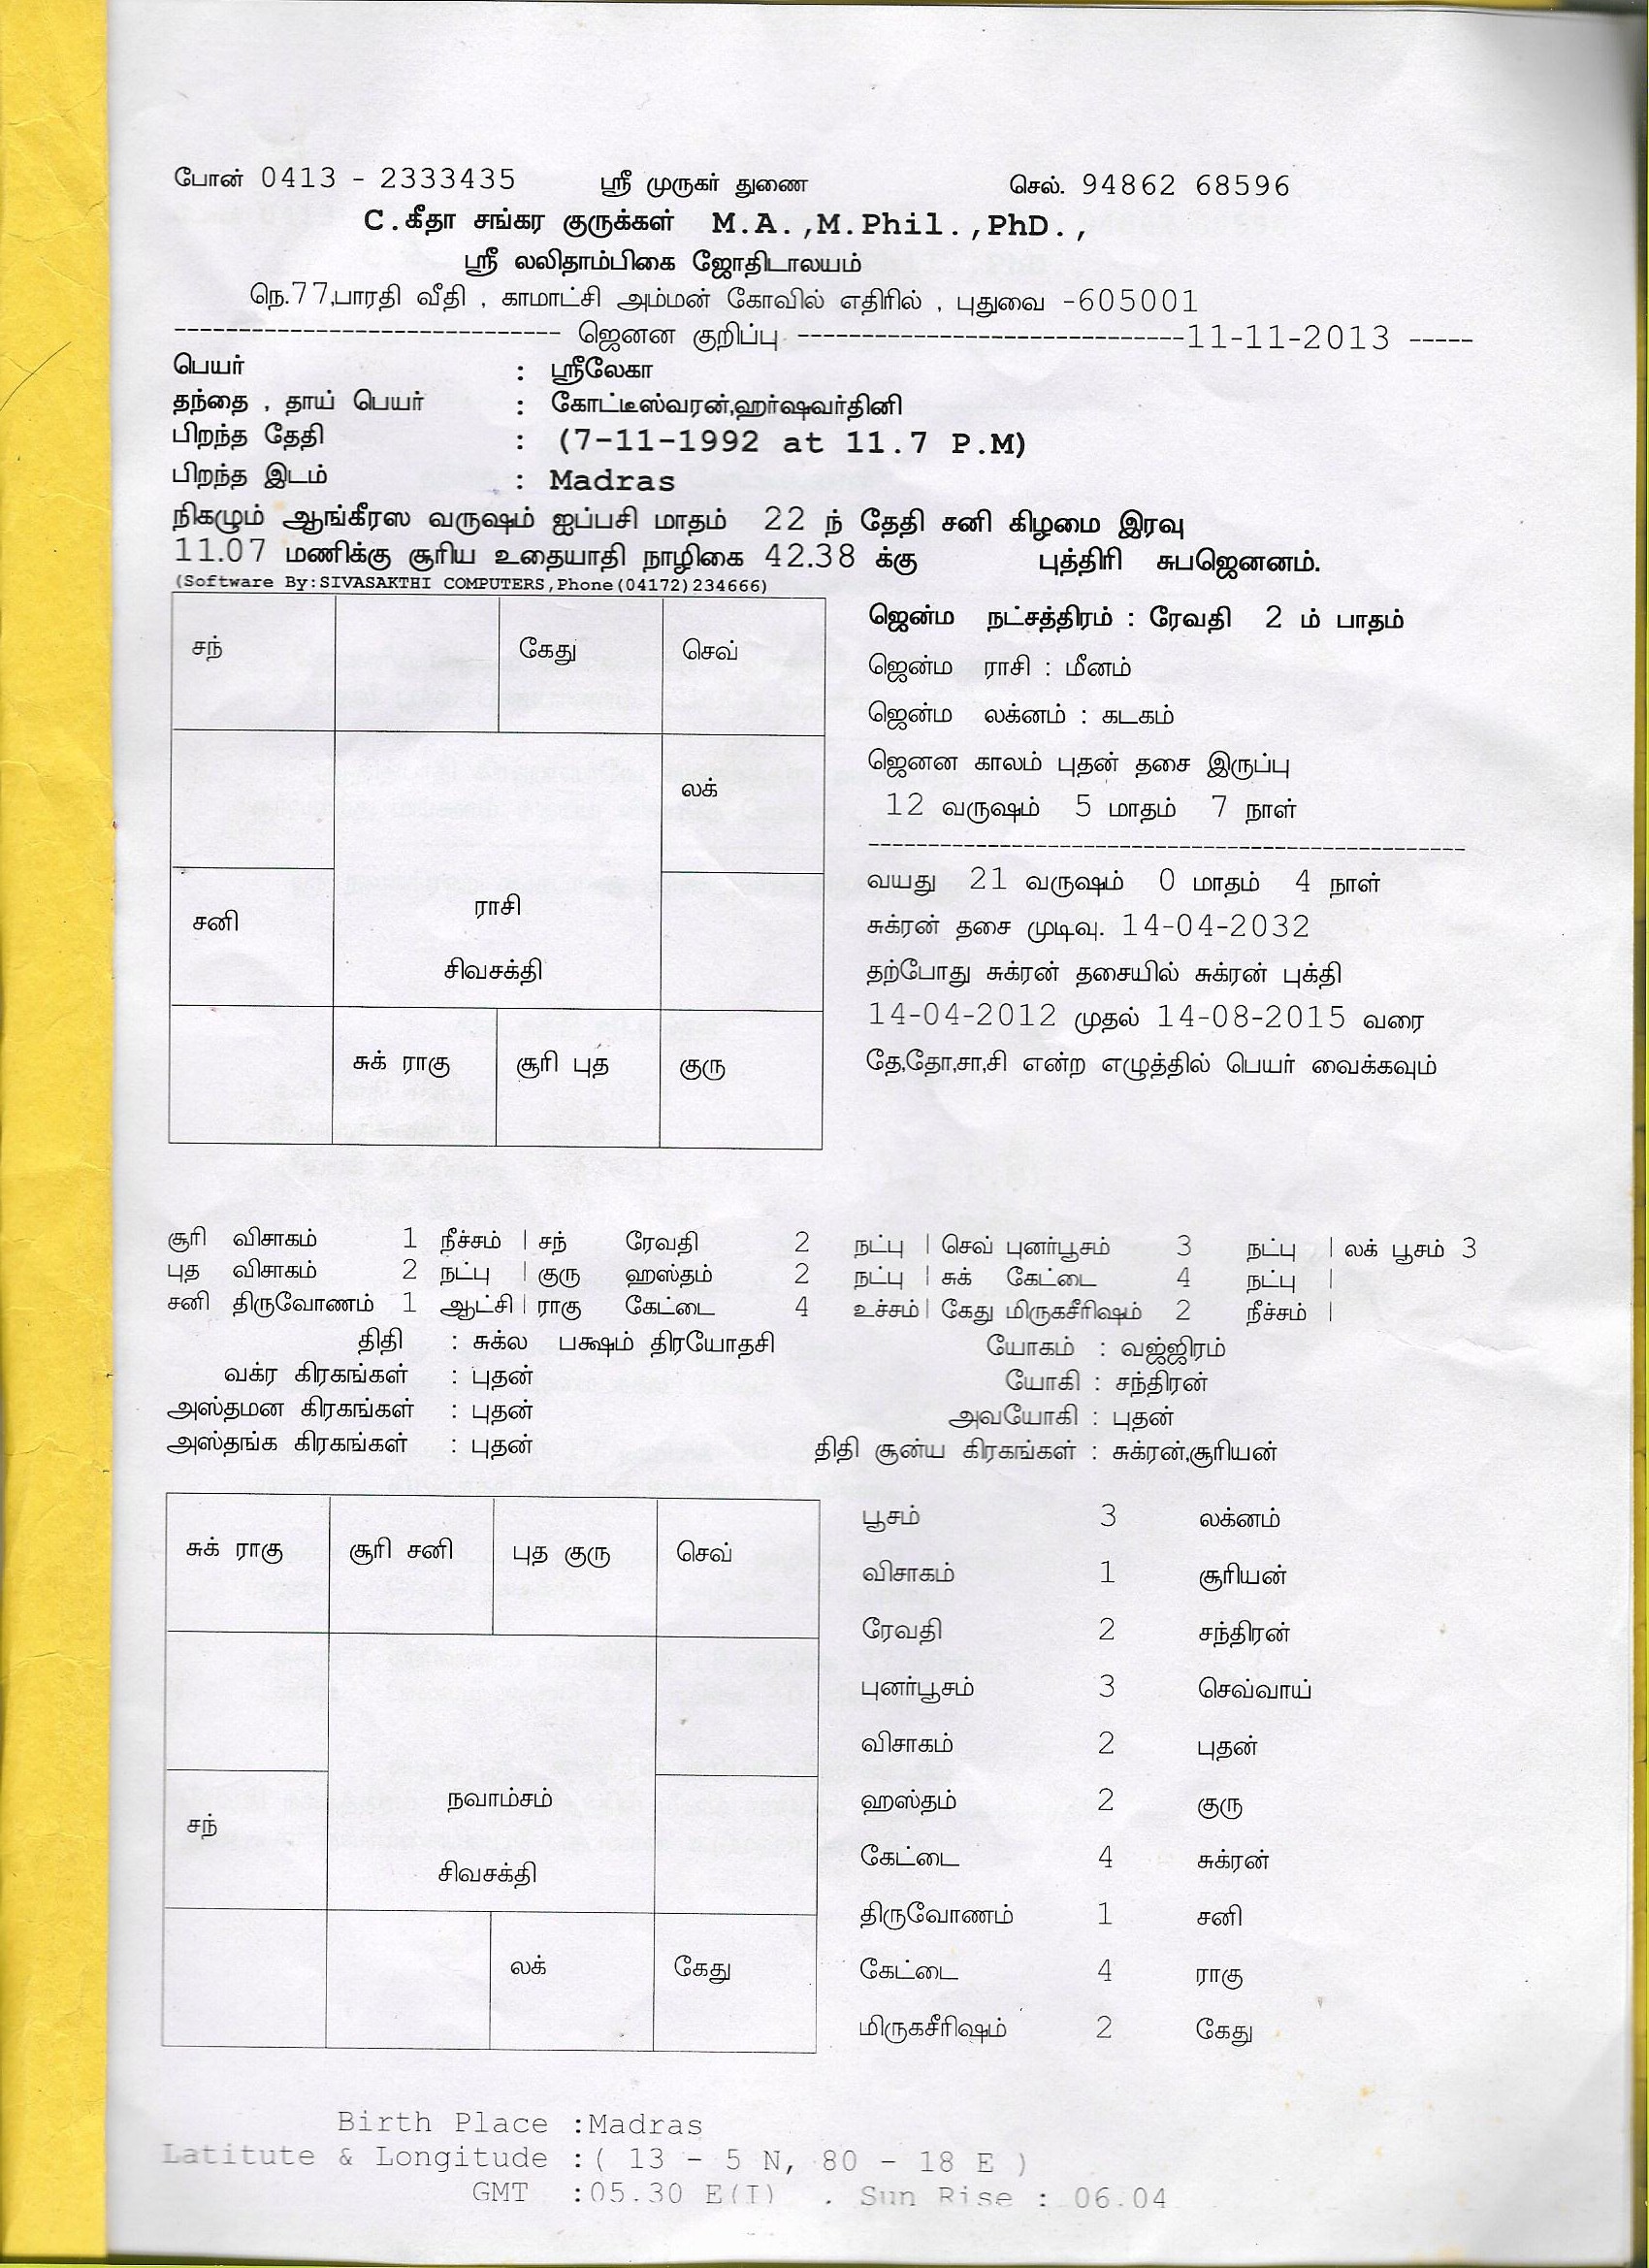 போன் 0413 - 2333435 ஸ்ரீ முருகர் துணை செல். 94862 68596
C.கீதா சங்கர குருக்கள் M.A.,M.Phil.,PhD.,
ஸ்ரீ லலிதாம்பிகை ஜோதிடாலயம்
நெ.77,பாரதி வீதி , காமாட்சி அம்மன் கோவில் எதிரில் , புதுவை -605001
------------------------------ ஜெனன குறிப்பு ------------------------------11-11-2013 -----
பெயர் : ஸ்ரீலேகா
தந்தை , தாய் பெயர் : கோட்டீஸ்வரன்,ஹர்ஷவர்தினி
பிறந்த தேதி : (7-11-1992 at 11.7 P.M)
பிறந்த இடம் : Madras
நிகழும் ஆங்கீரஸ வருஷம் ஐப்பசி மாதம் 22 ந் தேதி சனி கிழமை இரவு
11.07 மணிக்கு சூரிய உதையாதி நாழிகை 42.38 க்கு புத்திரி சுபஜெனனம்.
(Software By:SIVASAKTHI COMPUTERS,Phone(04172)234666)
சந் கேது செவ்
லக்
சனி ராசி
சிவசக்தி
சுக் ராகு சூரி புத குரு
ஜென்ம நட்சத்திரம் : ரேவதி 2 ம் பாதம்
ஜென்ம ராசி : மீனம்
ஜென்ம லக்னம் : கடகம்
ஜெனன காலம் புதன் தசை இருப்பு
12 வருஷம் 5 மாதம் 7 நாள்
--------------------------------------------------
வயது 21 வருஷம் 0 மாதம் 4 நாள்
சுக்ரன் தசை முடிவு. 14-04-2032
தற்போது சுக்ரன் தசையில் சுக்ரன் புக்தி
14-04-2012 முதல் 14-08-2015 வரை
தே,தோ,சா,சி என்ற எழுத்தில் பெயர் வைக்கவும்
சூரி விசாகம் 1 நீச்சம் | சந் ரேவதி 2 நட்பு | செவ் புனர்பூசம் 3 நட்பு | லக் பூசம் 3
புத விசாகம் 2 நட்பு | குரு ஹஸ்தம் 2 நட்பு | சுக் கேட்டை 4 நட்பு |
சனி திருவோணம் 1 ஆட்சி | ராகு கேட்டை 4 உச்சம் | கேது மிருகசீரிஷம் 2 நீச்சம் |
திதி : சுக்ல பக்ஷம் திரயோதசி யோகம் : வஜ்ஜிரம்
வக்ர கிரகங்கள் : புதன் யோகி : சந்திரன்
அஸ்தமன கிரகங்கள் : புதன் அவயோகி : புதன்
அஸ்தங்க கிரகங்கள் : புதன் திதி சூன்ய கிரகங்கள் : சுக்ரன்,சூரியன்
சுக் ராகு சூரி சனி புத குரு செவ்
நவாம்சம்
சந்
சிவசக்தி
லக் கேது
பூசம் 3 லக்னம்
விசாகம் 1 சூரியன்
ரேவதி 2 சந்திரன்
புனர்பூசம் 3 செவ்வாய்
விசாகம் 2 புதன்
ஹஸ்தம் 2 குரு
கேட்டை 4 சுக்ரன்
திருவோணம் 1 சனி
கேட்டை 4 ராகு
மிருகசீரிஷம் 2 கேது
Birth Place :Madras
Latitute & Longitude :( 13 - 5 N, 80 - 18 E )
GMT :05.30 E(I) . Sun Rise : 06.04